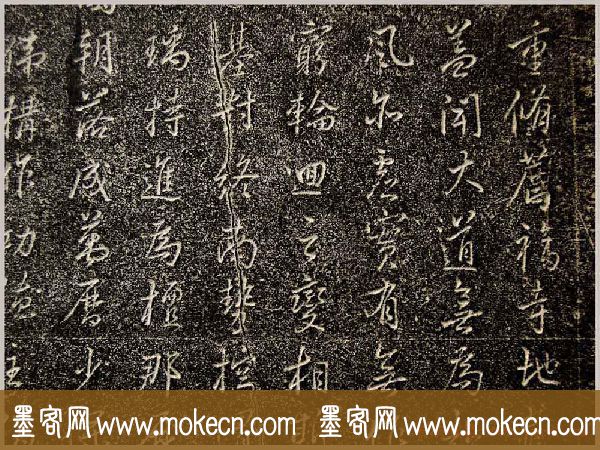 重脩薦福寺地
蓋聞大道無為
風尔虛實有無
窮輪迴之變相
基對終南
瑞持進為檀那
朝落成萬曆少
偉構作功德主
墨客网 www.mokecn.com 墨客网 www.mokecn.com